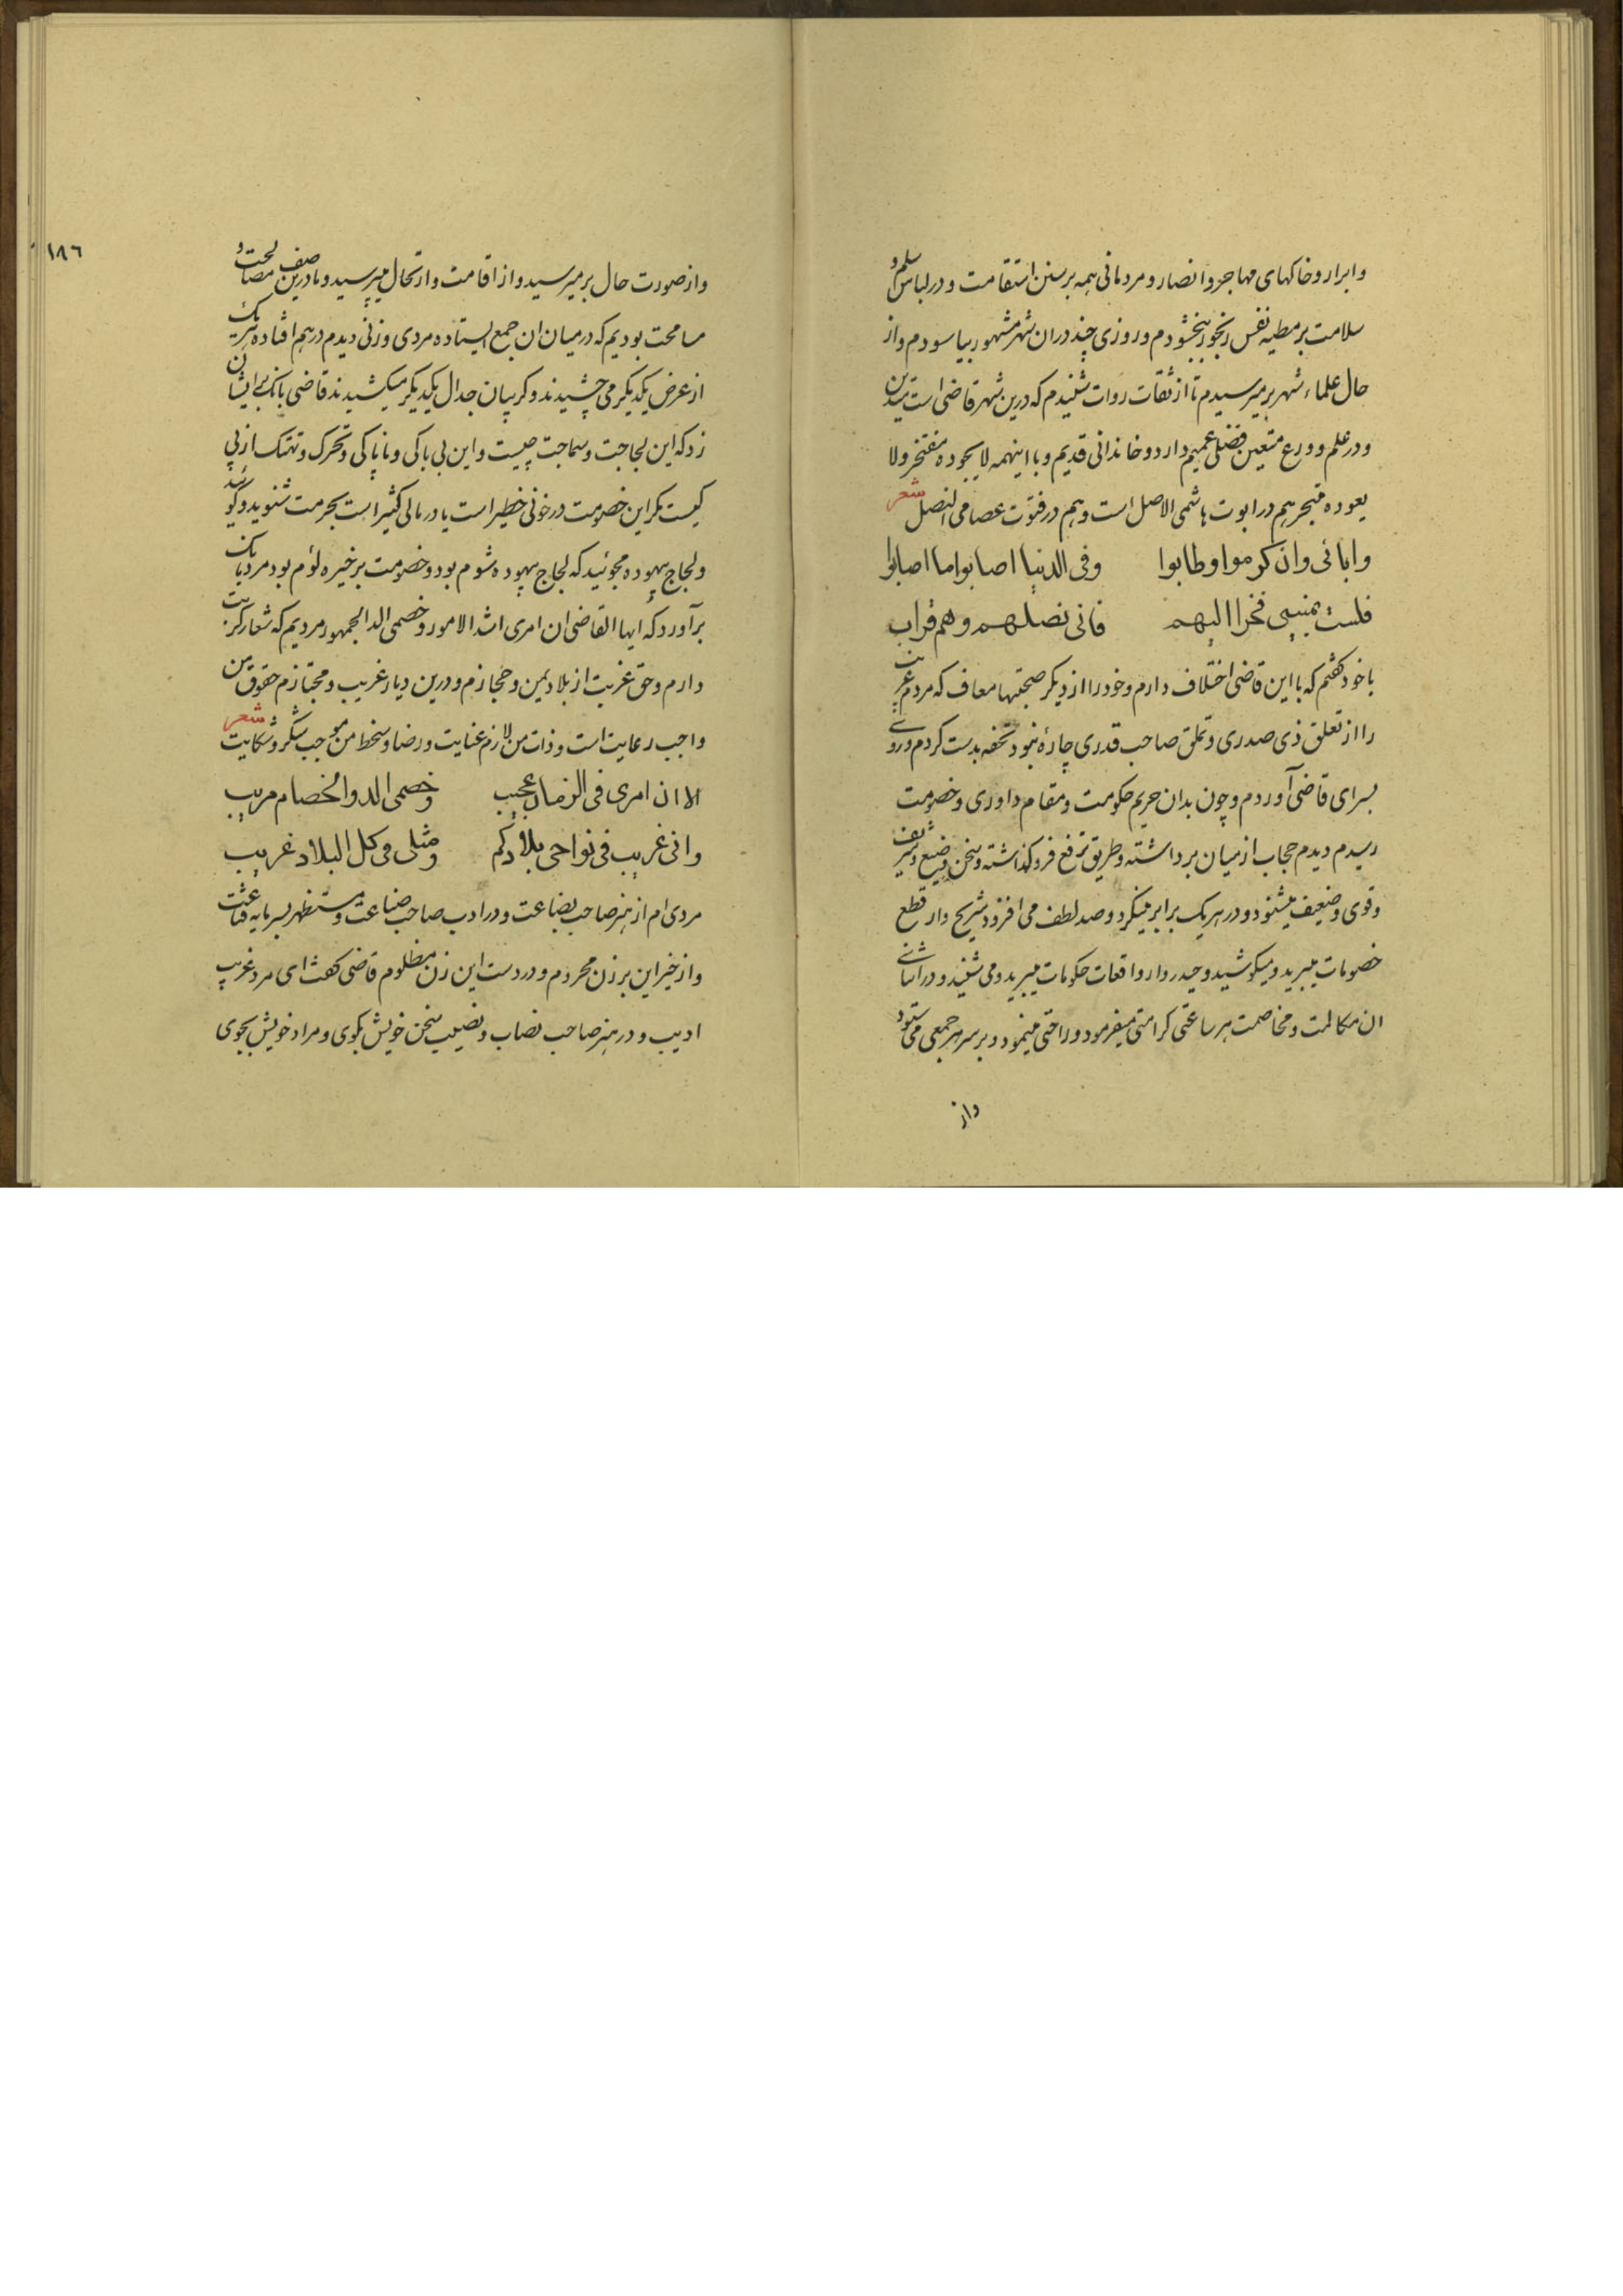 وابرار وخاکهای مهاجر وانصار ومردمانی همه بر سنن استقامت و در لباس سلم و
سلامت بر مطیه نفس رنجور ببخشودم وروزی چند دران شهر مشهور بیاسودم واز
حال علماء شهر برمیرسیدم تا از ثقات روات شنیدم که درین شهر قاضی است متدین
ودر علم وورع متعین فضلی عمیم دارد وخاندانی قدیم وبا اینهمه لا بجوده مفتخر ولا
یعوده متبحر هم در ابوت هاشمی الاصل است وهم در فتوت عصامی النصل شعر
وابائی وان کرموا وطابوا وفی الدنیا اصابوا ما اصابوا
فلست بمنبی فخرا الیهم فانی نصلهم وهم قراب
باخود گفتم که با این قاضی اختلاف دارم وخود را از دیکر صحبتها معاف که مردم غریب
را از تعلق ذی صدری وتملق صاحب قدری چارۀ نبود تحفه بدست کردم وروی
بسرای قاضی آوردم وچون بدان حریم حکومت ومقام داوری وخصومت
رسیدم دیدم حجاب از میان برداشته وطریق ترفع فروگذاشته وسخن وضیع وشریف
وقوی وضعیف میشنود ودر هریک برابر مینگرد وصد لطف می افزود شریح وار قطع
خصومات میبرید ومیکوشید وحیدروار واقعات حکومات میبرید ومی شنید ودر اثنای
ان مکالمت ومخاصمت هر ساعتی کرامتی میفرمود وراحتی مینمود وبر سر هر جمعی می ستود
واز
١٨٦
واز صورت حال بر میرسید واز اقامت وارتحال میپرسید وما درین صف مصالحت و
مسامحت بودیم که درمیان ان جمع ایستاده مردی وزنی دیدم درهم افتاده هریک
از عرض یکدیکر می چشیدند وکریبان جدال یکدیکر میکشیدند قاضی بانک بر ایشان
زد که این لجاجت وسماجت چیست واین بی باکی وناپاکی وتحرک وتهتک از پی
کیست مکر این خصومت در خونی خطیر است یا در مالی کثیر است بحرمت شنوید وکوئید
ولجاج بیهوده مجوئید که لجاج بیهوده شوم بود وخصومت بر خیره لوم بود مرد بانک
برآورد که ایها القاضی ان امری اشد الامور وخصمی الد الجمهور مردیم که شعار کربت
دارم وحق غربت از بلاد یمن وحجازم ودرین دیار غریب ومجتازم حقوق من
واجب رعایت است وذات من لازم عنایت ورضا وسخط من موجب شکر وشکایت شعر
الا ان امری فی الزمان عجیب وخصمی الد والخصام مریب
وانی غریب فی نواحی بلادکم ومثلی فی کل البلاد غریب
مردی ام از هنر صاحب بضاعت ودر ادب صاحب صناعت ومستظهر بسرمایه قناعت
واز خیر این برزن محروم ودر دست این زن مظلوم قاضی گفت ای مرد غریب
ادیب ودر هنر صاحب نصاب ونصیب سخن خویش بکوی ومراد خویش بجوی